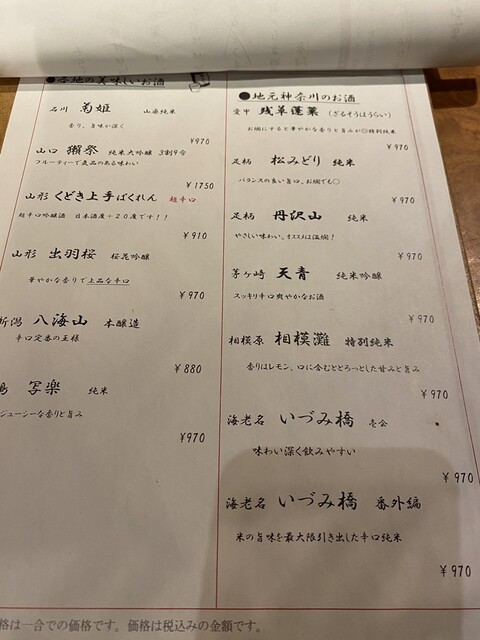 ●各地の美味しいお酒
石川 菊姫 山廃純米
香り、旨味が深く
¥970
山口 獺祭 純米大吟醸 3割9分
フルーティーで気品のある味わい
¥1750
山形 くどき上手 ばくれん 超辛口
超辛口吟醸酒 日本酒度+20度です!!
¥910
山形 出羽桜 桜花吟醸
華やかな香りで上品な辛口
¥970
新潟 八海山 本醸造
辛口定番の王様
¥880
島 写楽 純米
ジューシーな香りと旨み
¥970
●地元神奈川のお酒
愛甲 残草蓬莱 (ざるそうほうらい)
お燗にすると華やかな香りと旨みが◎特別純米
¥970
足柄 松みどり 純米
バランスの良い旨口、お燗でも○
¥970
足柄 丹沢山 純米
やさしい味わい。オススメは温燗!
¥970
茅ヶ崎 天青 純米吟醸
スッキリ辛口爽やかなお酒
¥970
相模原 相模灘 特別純米
香りはレモン、口に含むととろっとした甘みと旨み
¥970
海老名 いづみ橋 壱会
味わい深く飲みやすい
¥970
海老名 いづみ橋 番外編
米の旨味を最大限引き出した辛口純米
¥970
格は一合での価格です。価格は税込みの金額です。